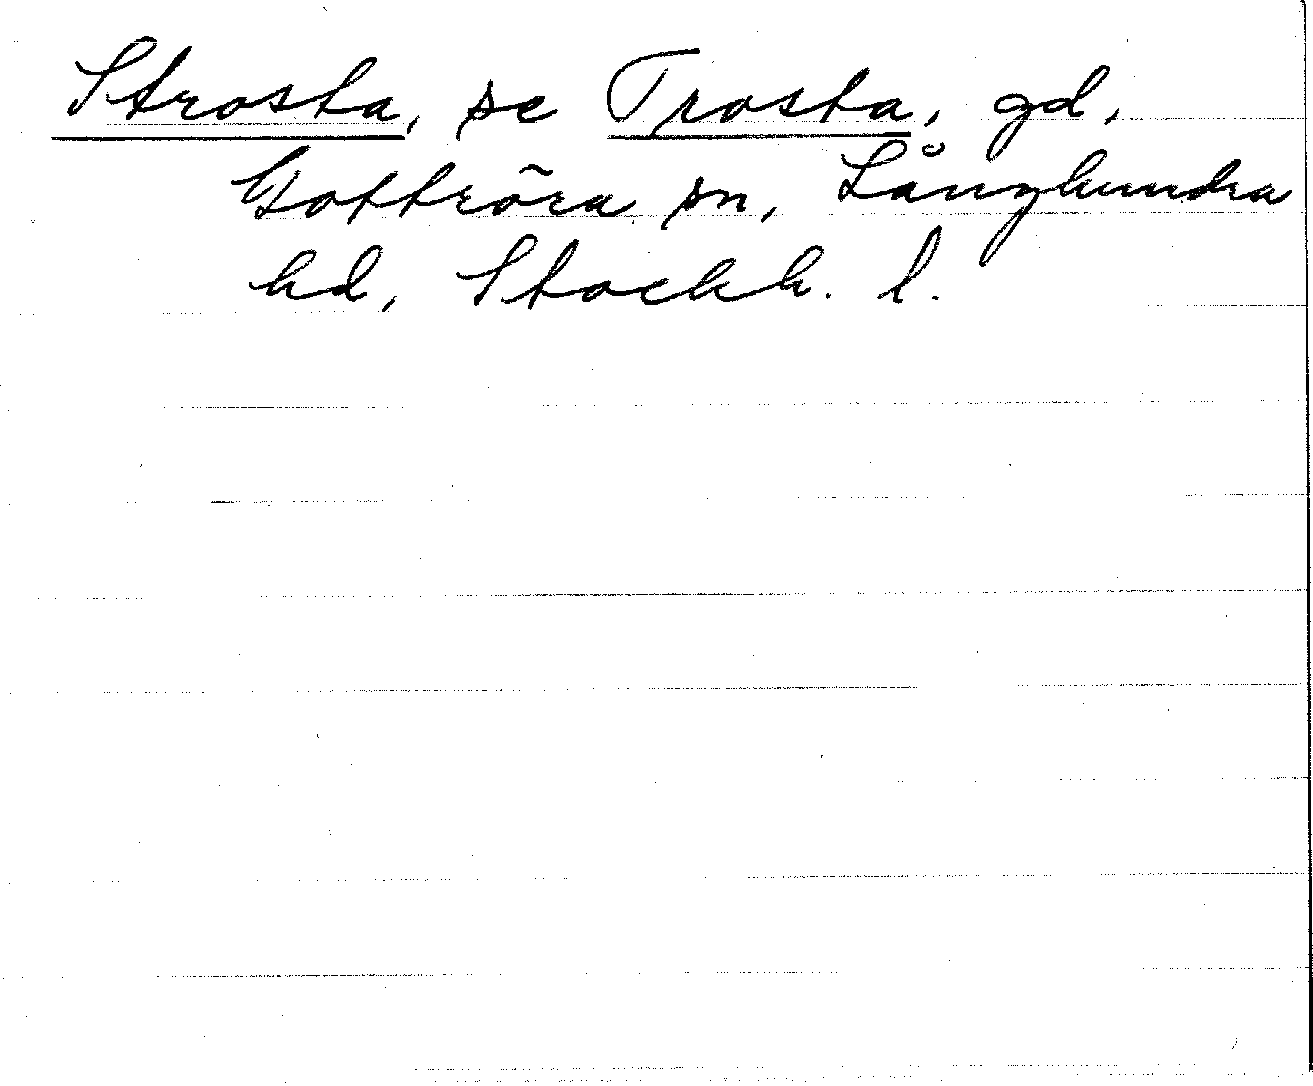 Strosta, se Trosta, gd,
Gottröra sn, Långhundra
hd, Stockh. l.